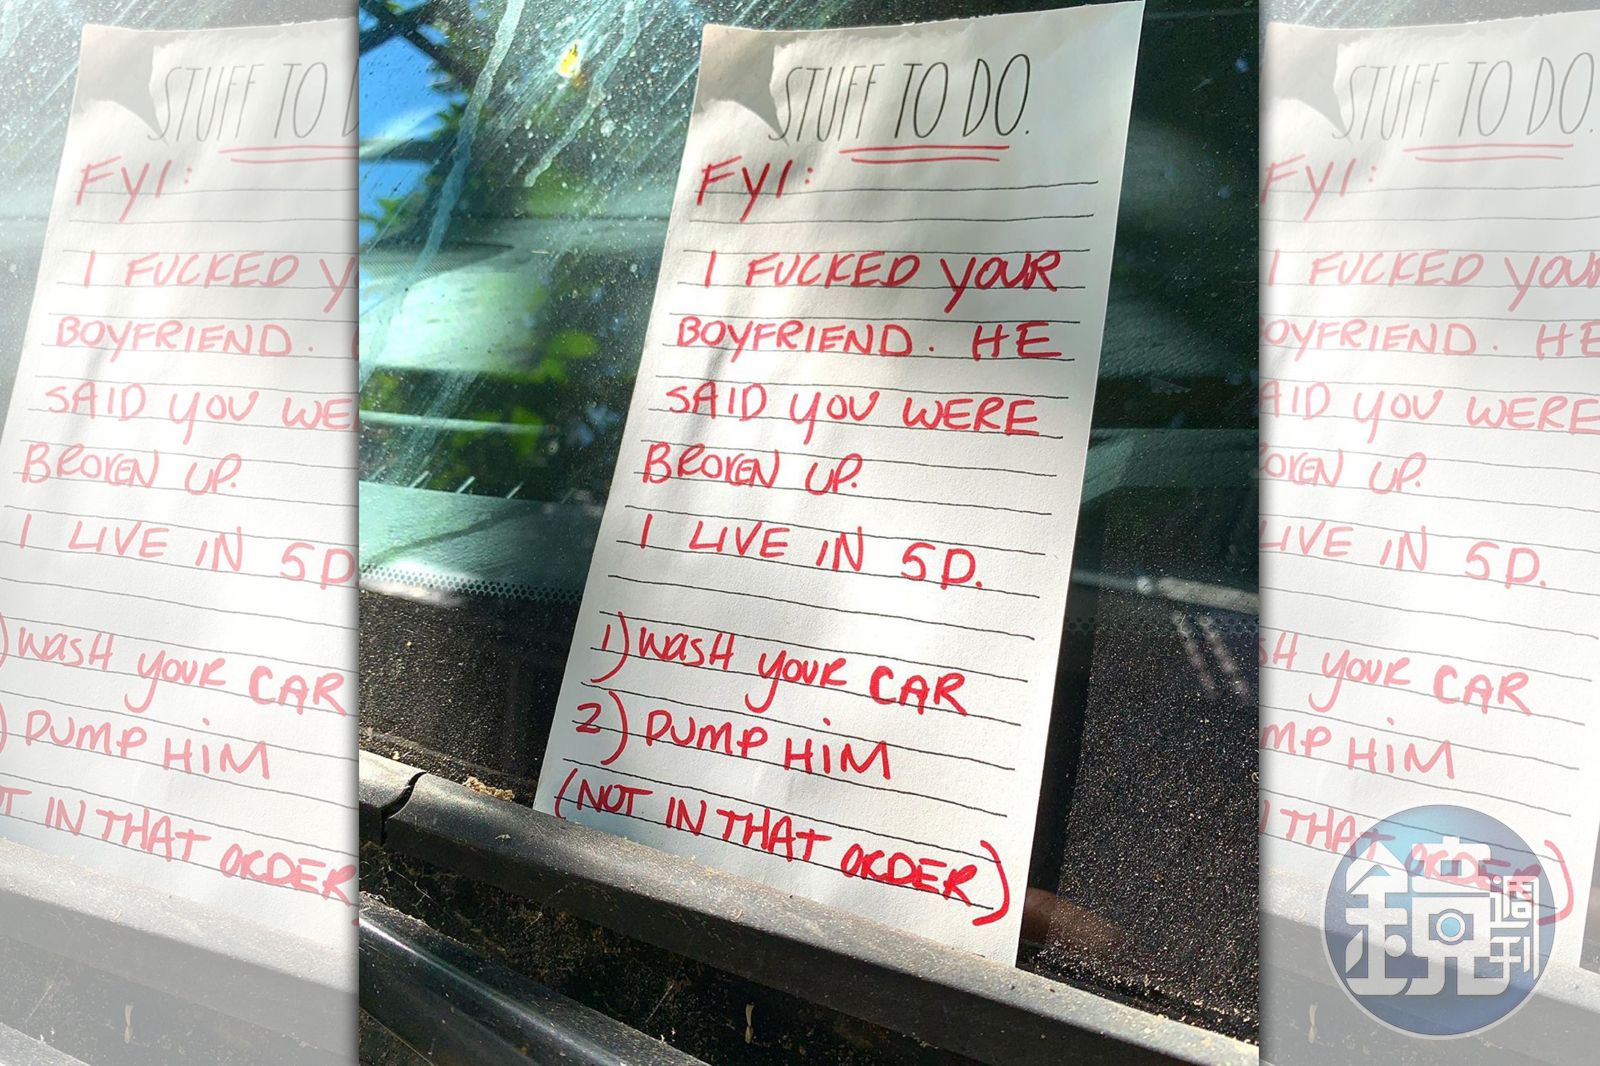 STUFF TO DO.
FYI:
I FUCKED YOUR
BOYFRIEND. HE
SAID YOU WERE
BROKEN UP.
I LIVE IN 5D.
1) WASH YOUR CAR
2) DUMP HIM
(NOT IN THAT ORDER)
鏡週刊